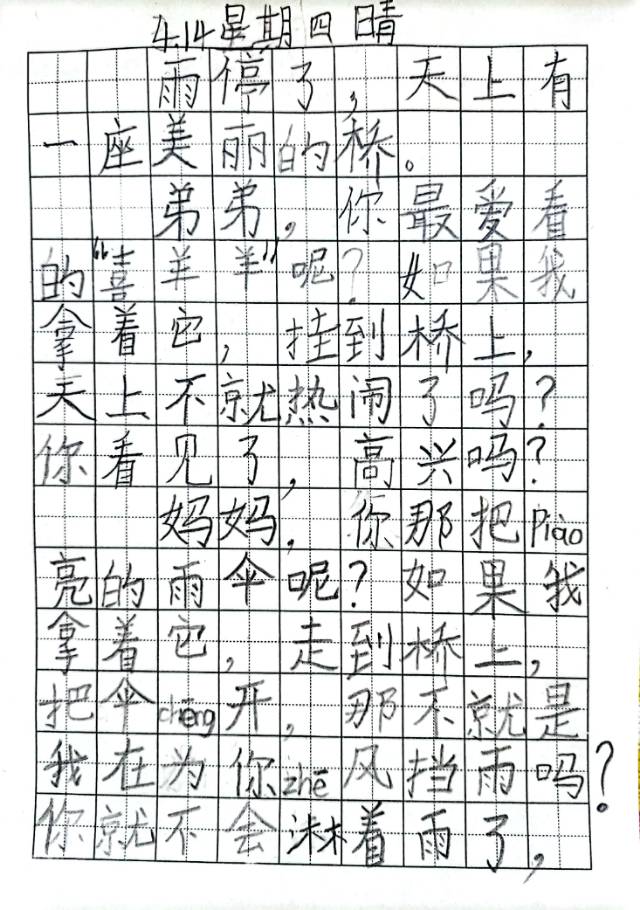 4.14星期四 晴
雨停了，天上有
一座美丽的桥。
弟弟，你最爱看
的“喜羊羊”呢？如果我
拿着它，挂到桥上，
天上不就热闹了吗？
你看见了，高兴吗？
妈妈，你那把piào
亮的雨伞呢？如果我
拿着它，走到桥上，
把伞chēng开，那不就是
我在为你zhē风挡雨吗？
你就不会淋着雨了，